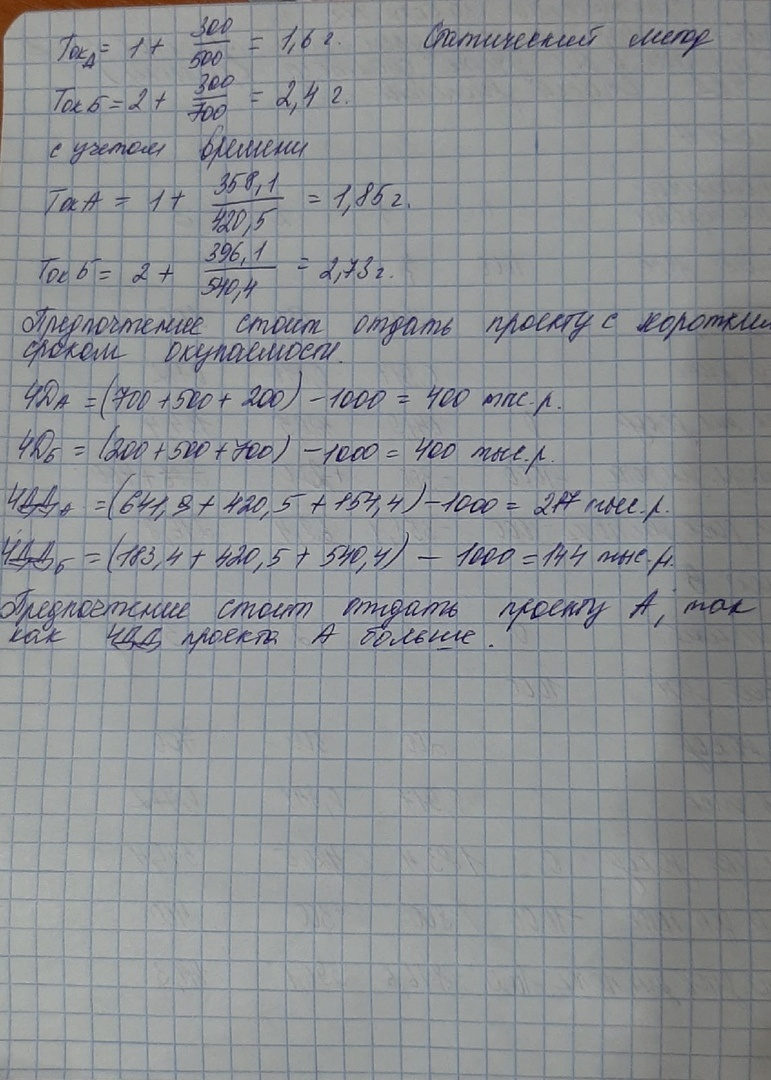 Ток А = 1 + 300/500 = 1,6 г. Статический метод
Ток Б = 2 + 300/700 = 2,4 г.
с учетом времени
Ток А = 1 + 358,1/420,5 = 1,85 г.
Ток Б = 2 + 396,1/540,4 = 2,73 г.
Предпочтение стоит отдать проекту с коротким
сроком окупаемости.
ЧДА = (700 + 500 + 200) - 1000 = 400 тыс.р.
ЧДБ = (200 + 500 + 700) - 1000 = 400 тыс.р.
ЧДДА = (641,9 + 420,5 + 154,4) - 1000 = 217 тыс.р.
ЧДДБ = (183,4 + 420,5 + 540,4) - 1000 = 144 тыс.р.
Предпочтение стоит отдать проекту А, так
как ЧДД проекта А больше.